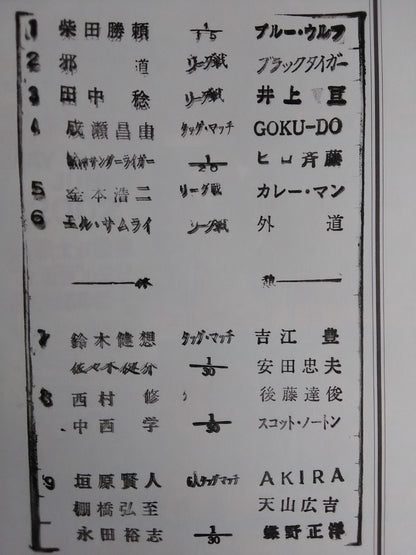 1 柴田勝頼 1/15 ブルー・ウルフ
2 邪道 リーグ戦 ブラックタイガー
3 田中稔 リーグ戦 井上亘
4 成瀬昌由 タッグ・マッチ GOKU-DO
獣神サンダーライガー 1/20 ヒロ斉藤
5 金本浩二 リーグ戦 カレー・マン
6 エル・サムライ リーグ戦 外道
休 憩
7 鈴木健想 タッグ・マッチ 吉江豊
佐々木健介 1/30 安田忠夫
8 西村修 後藤達俊
中西学 1/30 スコット・ノートン
9 垣原賢人 6人タッグマッチ AKIRA
棚橋弘至 天山広吉
永田裕志 1/30 蝶野正洋